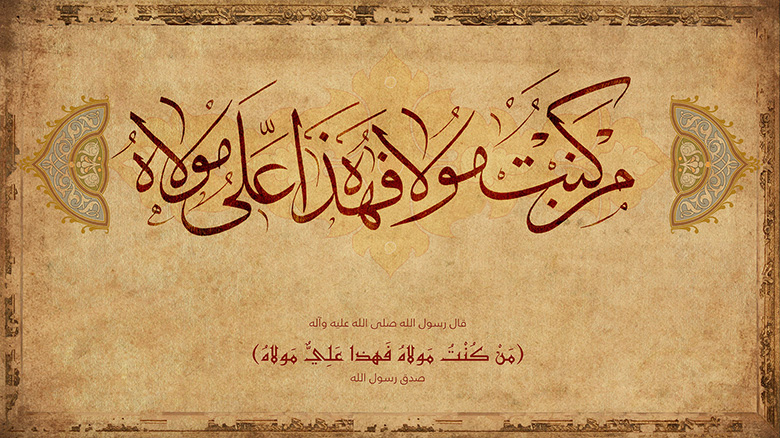 من كنت مولاه فهذا علي مولاه
قال رسول الله صلى الله عليه وآله
(مَنْ كُنْتُ مَولاهُ فَهذا عَلِيٌّ مَولاهُ)
صدق رسول الله